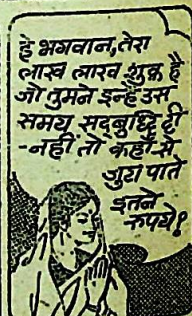 हे भगवान, तेरा
लाख लाख शुक्र है
जो तुमने इन्हें उस
समय सद्बुद्धि दी
-नहीं तो कहाँ से
जुटा पाते
इतने
रुपये!